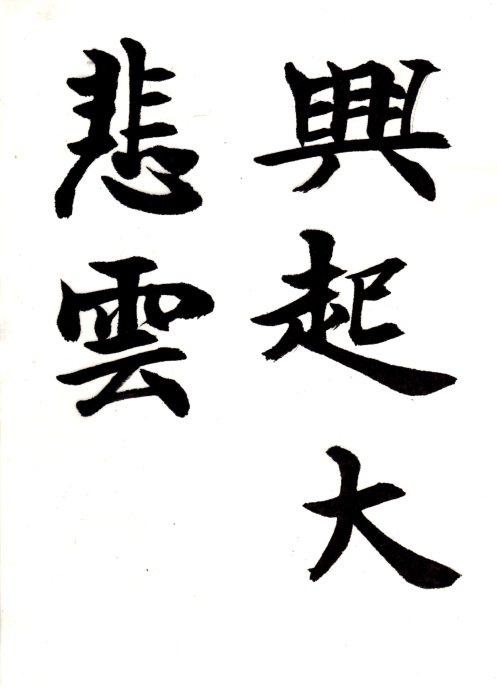 興起大
悲雲